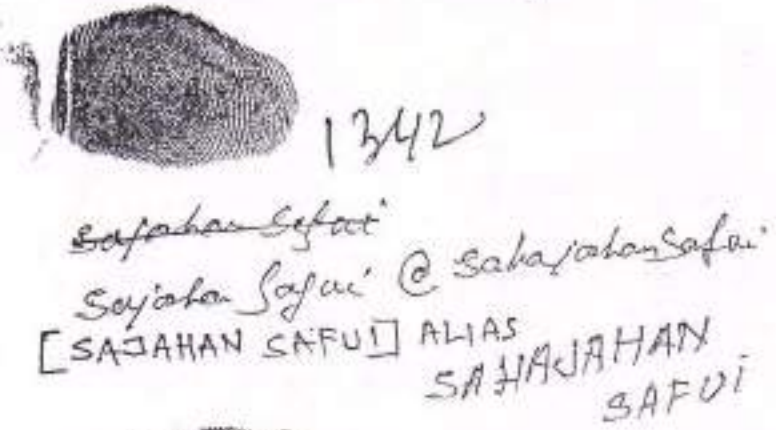 1342
Sajahan Safui
Sajahan Safui @ Sahajahan Safui
[SAJAHAN SAFUI] ALIAS
SAHAJAHAN
SAFUI